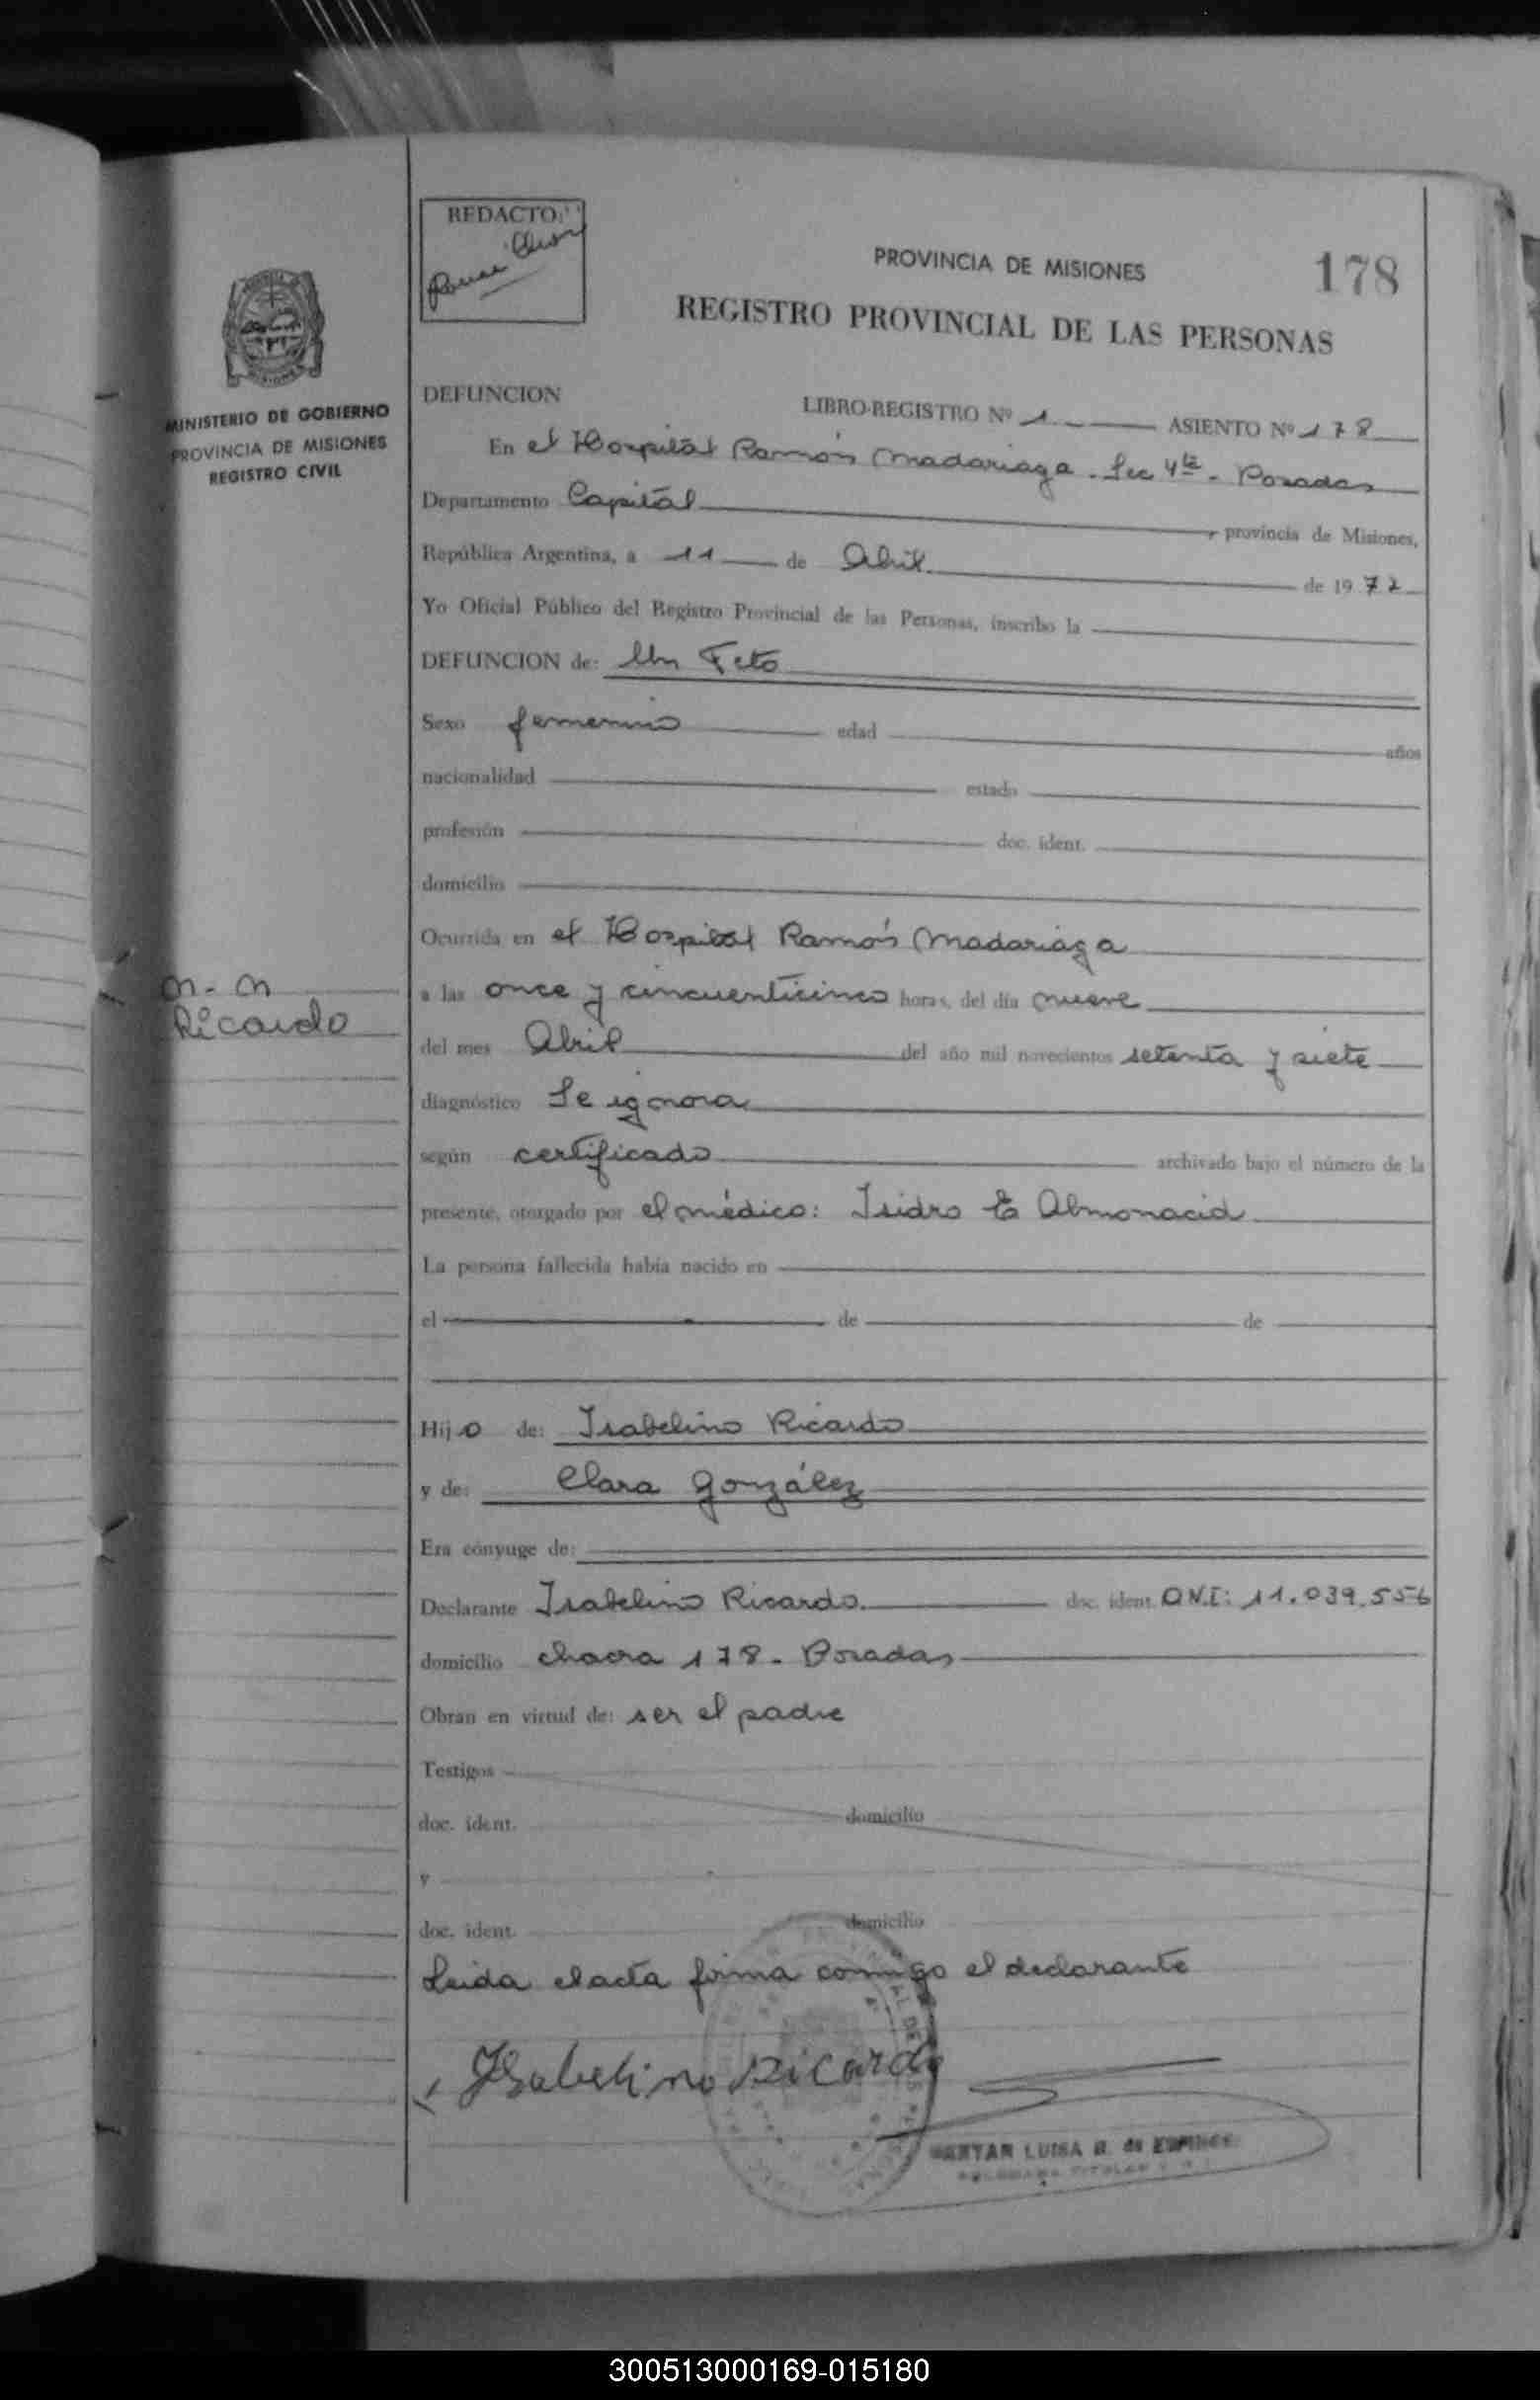 REDACTO:
PROVINCIA DE MISIONES
178
REGISTRO PROVINCIAL DE LAS PERSONAS
MINISTERIO DE GOBIERNO
PROVINCIA DE MISIONES
REGISTRO CIVIL
DEFUNCION LIBRO-REGISTRO Nº 1 ASIENTO Nº 178
En el Hospital Ramón Madariaga - Sec 4ta - Posadas
Departamento Capital, provincia de Misiones,
República Argentina, a 11 de Abril de 1972
Yo Oficial Público del Registro Provincial de las Personas, inscribo la
DEFUNCION de: Un Feto
Sexo femenino edad años
nacionalidad estado
profesión doc. ident.
domicilio
Ocurrida en el Hospital Ramón Madariaga
n. n
Ricardo
a las once y cincuenticinco horas, del día nueve
del mes Abril del año mil novecientos setenta y siete
diagnóstico Se ignora
según certificado archivado bajo el número de la
presente, otorgado por el médico: Isidro E Almonacid
La persona fallecida había nacido en
el de de
Hijo de: Isabelino Ricardo
y de: Clara González
Era cónyuge de:
Declarante Isabelino Ricardo. doc. ident. D.N.I: 11.039.556
domicilio chacra 178 - Posadas
Obran en virtud de: ser el padre
Testigos
doc. ident. domicilio
y
doc. ident. domicilio
Leida el acta firma conmigo el declarante
Isabelino Ricardo
LUISA
300513000169-015180